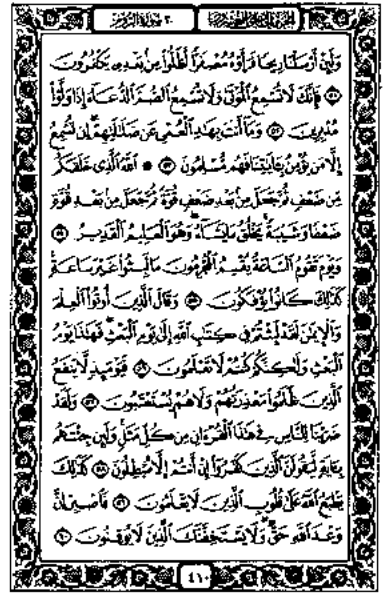 الجزء الحادي والعشرون ٣٠ سورة الروم
وَلَئِنْ أَرْسَلْنَا رِيحًا فَرَأَوْهُ مُصْفَرًّا لَّظَلُّوا مِنۢ بَعْدِهِۦ يَكْفُرُونَ
﴿٥١﴾ فَإِنَّكَ لَا تُسْمِعُ ٱلْمَوْتَىٰ وَلَا تُسْمِعُ ٱلصُّمَّ ٱلدُّعَآءَ إِذَا وَلَّوْا۟
مُدْبِرِينَ ﴿٥٢﴾ وَمَآ أَنتَ بِهَٰدِ ٱلْعُمْىِ عَن ضَلَٰلَتِهِمْ إِن تُسْمِعُ
إِلَّا مَن يُؤْمِنُ بِـَٔايَٰتِنَا فَهُم مُّسْلِمُونَ ﴿٥٣﴾ ۞ ٱللَّهُ ٱلَّذِى خَلَقَكُم
مِّن ضَعْفٍ ثُمَّ جَعَلَ مِنۢ بَعْدِ ضَعْفٍ قُوَّةً ثُمَّ جَعَلَ مِنۢ بَعْدِ قُوَّةٍ
ضَعْفًا وَشَيْبَةً يَخْلُقُ مَا يَشَآءُ وَهُوَ ٱلْعَلِيمُ ٱلْقَدِيرُ ﴿٥٤﴾
وَيَوْمَ تَقُومُ ٱلسَّاعَةُ يُقْسِمُ ٱلْمُجْرِمُونَ مَا لَبِثُوا۟ غَيْرَ سَاعَةٍ
كَذَٰلِكَ كَانُوا۟ يُؤْفَكُونَ ﴿٥٥﴾ وَقَالَ ٱلَّذِينَ أُوتُوا۟ ٱلْعِلْمَ
وَٱلْإِيمَٰنَ لَقَدْ لَبِثْتُمْ فِى كِتَٰبِ ٱللَّهِ إِلَىٰ يَوْمِ ٱلْبَعْثِ فَهَٰذَا يَوْمُ
ٱلْبَعْثِ وَلَٰكِنَّكُمْ كُنتُمْ لَا تَعْلَمُونَ ﴿٥٦﴾ فَيَوْمَئِذٍ لَّا يَنفَعُ
ٱلَّذِينَ ظَلَمُوا۟ مَعْذِرَتُهُمْ وَلَا هُمْ يُسْتَعْتَبُونَ ﴿٥٧﴾ وَلَقَدْ
ضَرَبْنَا لِلنَّاسِ فِى هَٰذَا ٱلْقُرْءَانِ مِن كُلِّ مَثَلٍ وَلَئِن جِئْتَهُم
بِـَٔايَةٍ لَّيَقُولَنَّ ٱلَّذِينَ كَفَرُوٓا۟ إِنْ أَنتُمْ إِلَّا مُبْطِلُونَ ﴿٥٨﴾ كَذَٰلِكَ
يَطْبَعُ ٱللَّهُ عَلَىٰ قُلُوبِ ٱلَّذِينَ لَا يَعْلَمُونَ ﴿٥٩﴾ فَٱصْبِرْ إِنَّ
وَعْدَ ٱللَّهِ حَقٌّ وَلَا يَسْتَخِفَّنَّكَ ٱلَّذِينَ لَا يُوقِنُونَ ﴿٦٠﴾
٤١٠